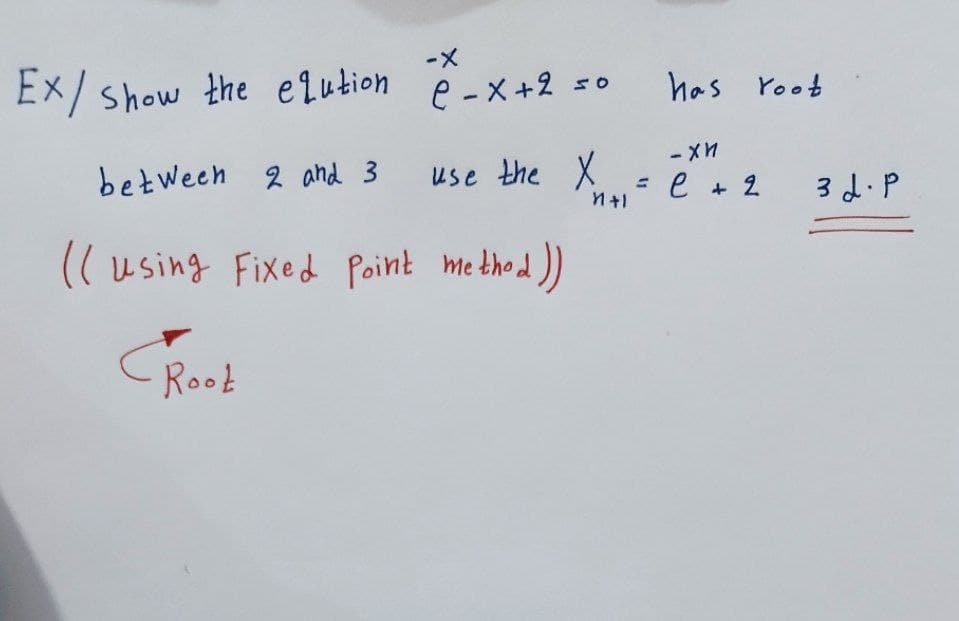 Ex/ show the eqution e^-x - x + 2 = 0 has root
between 2 and 3 use the X_n+1 = e^-xn + 2 3 d.p
(( using Fixed Point method ))
Root